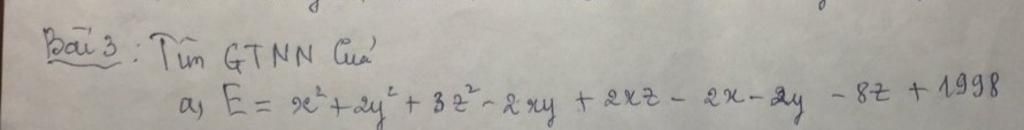 Bài 3: Tìm GTNN Của
a, E = x² + 2y² + 3z² - 2xy + 2xz - 2x - 2y - 8z + 1998